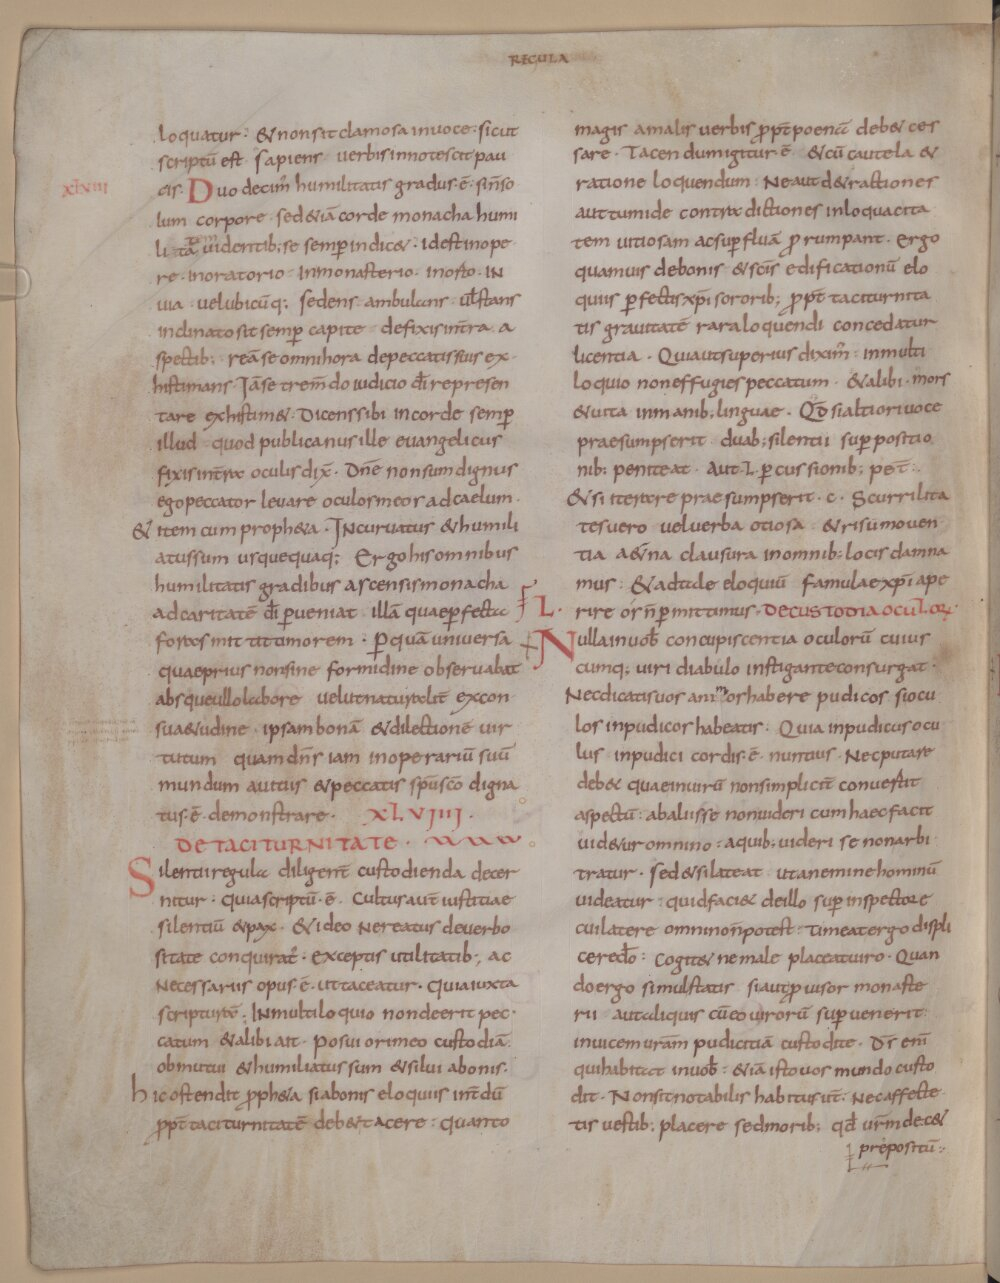 REGULA
loquatur · & non sit clamosa in uoce · sicut
scriptū est · sapiens uerbis innotescit pau
XLVIII
cis · Duodecim̄ humilitatis gradus · ē · si n̄ so
lum corpore · sed & iā corde monacha humi
lita uidentib; se semp indic& · id est in ope
re · in oratorio · in monasterio · in orto · IN
uia · uel ubicūq; sedens ambulans uł stans
inclinato sit semp capite defixis in t̄ra a
spectib; reā se omni hora de peccatis suis ex
histimans · Iā se trem̄do iudicio dī represen
tare exhistim& · Dicens sibi in corde semp
illud quod publicanus ille euangelicus
fixis in t̄ra oculis dix̄ · Dn̄e non sum dignus
ego peccator leuare oculos meos ad caelum ·
& item cum proph&a · INcuruatus & humili
atus sum usquequaq; Ergo his omnibus
humilitatis gradibus ascensis monacha
ad caritatē dī perueniat · illā quae perfecta
foras mittit timorem · P quā uniuersa
quae prius non sine formidine obseruabat
absque ullo labore uelut naturalit̄ ex con
sua&udine · ipsam bonā & dilectionē uir
tutum quam dn̄s iam in operariū suū
mundum a uitiis & peccatis sp̄u sc̄o digna
tus · ē · demonstrare · XLVIIII ·
DE TACITURNITATE ·
Silentii regula diligent̄ custodienda decer
nitur · quia scriptū · ē · Cultus aut̄ iustitiae
silentiū & pax · & ideo Ne reatus de uerbo
sitate conquirat̄ · exceptis utilitatib; ac
Necessariis opus · ē · ut taceatur · Quia iuxta
scripturā · IN multiloquio non deerit pec
catum & alibi ait · Posui ori meo custodiā
obmutui & humiliatus sum & silui a bonis ·
hic ostendit proph&a si a bonis eloquiis int̄dū
prop̄t taciturnitatē deb& tacere : quanto
magis a malis uerbis prop̄t poenā deb& ces
sare · Tacendum igitur · ē · & cū cautela &
ratione loquendum : Ne aut d&ractiones
aut tumide contradictiones in loquacita
tem uitiosam ac supfluā prorumpant · Ergo
quamuis de bonis & scīs edificationū elo
quiis perfectis xp̄i sororib; prop̄t taciturnita
tis grauitatē rara loquendi concedatur
licentia · Quia ut superius dixim̄ : in multi
loquio non effugies peccatum · & alibi · mors
& uita in manib; linguae · Qd̄ si altiori uoce
praesumpserit duab; silentii suppositio
nib; peniteat · Aut · L · percussionib; pe t̄
& si iterare praesumpserit · c · Scurrilita
tes uero uel uerba otiosa & risū mouen
tia a&erna clausura in omnib; locis damna
mus : & ad tale eloquiū famulae xp̄i ape
L · rire os n̄ permittimus · DE CUSTODIA OCULOR
Nulla in uob̄ concupiscentia oculorū cuius
cumq; uiri diabulo instigante consurgat ·
Nec dicatis uos animos habere pudicos si ocu
los inpudicos habeatis · Quia inpudicus ocu
lus inpudici cordis · ē · nuntius · Nec putare
deb& quae in uirū non simplicit̄ conuertit
aspectū : ab aliis se non uideri cum haec facit
uid&ur omnino : a quib; uideri se non arbi
tratur · sed & si lateat ut a nemine hominū
uideatur : quid faci& de illo sup inspectore
cui latere omnino n̄ potest : Timeat ergo displi
cere dō : Cogit& ne male placeat uiro · Quan
do ergo simul statis si aut prouisor monaste
rii aut aliquis cū eo uirorū superuenerit
inuicem uram̄ pudicitiā custodite · Ds̄ enī
qui habitat in uob̄ : & iā isto uos mundo custo
dit · Non sit notabilis habitus ur̄ · Nec affecte
tis uestib; placere sed morib; qd̄ urm̄ dec&
prepositū :